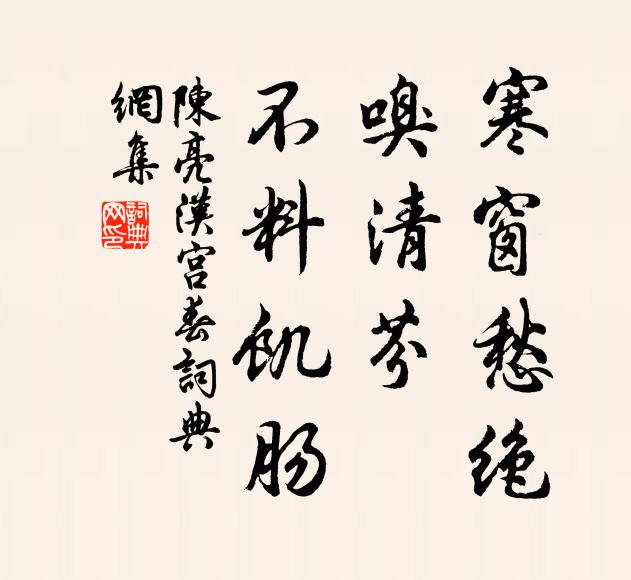 寒窗愁绝
嗅清芬
不料飢肠
陳亮漢宫春詞典
網集
詞典
网印